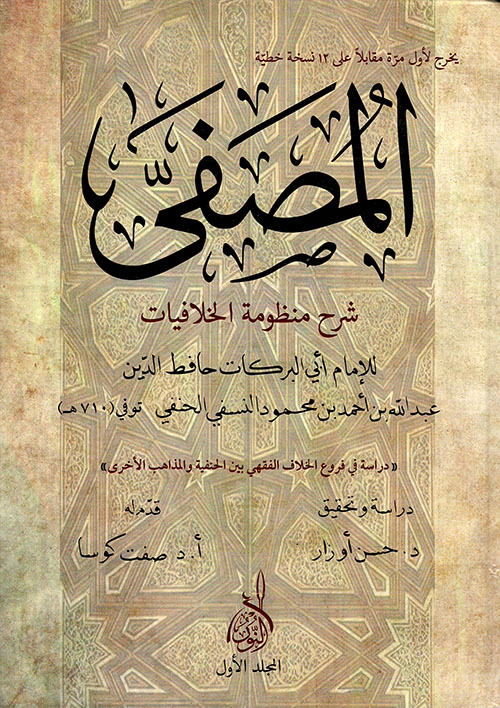 يخرج لأول مرّة مقابلاً على ١٢ نسخة خطيّة
المُصَفَّى
شرح منظومة الخلافيات
للإمام أبي البركات حافظ الدّين
عبدالله بن أحمد بن محمود النسفي الحنفي توفي (٧١٠ هـ)
«دراسة في فروع الخلاف الفقهي بين الحنفية والمذاهب الأخرى»
دراسة وتحقيق
د. حسن أوزار
قدّم له
أ. د صفت كوسا
النّور
المجلد الأول